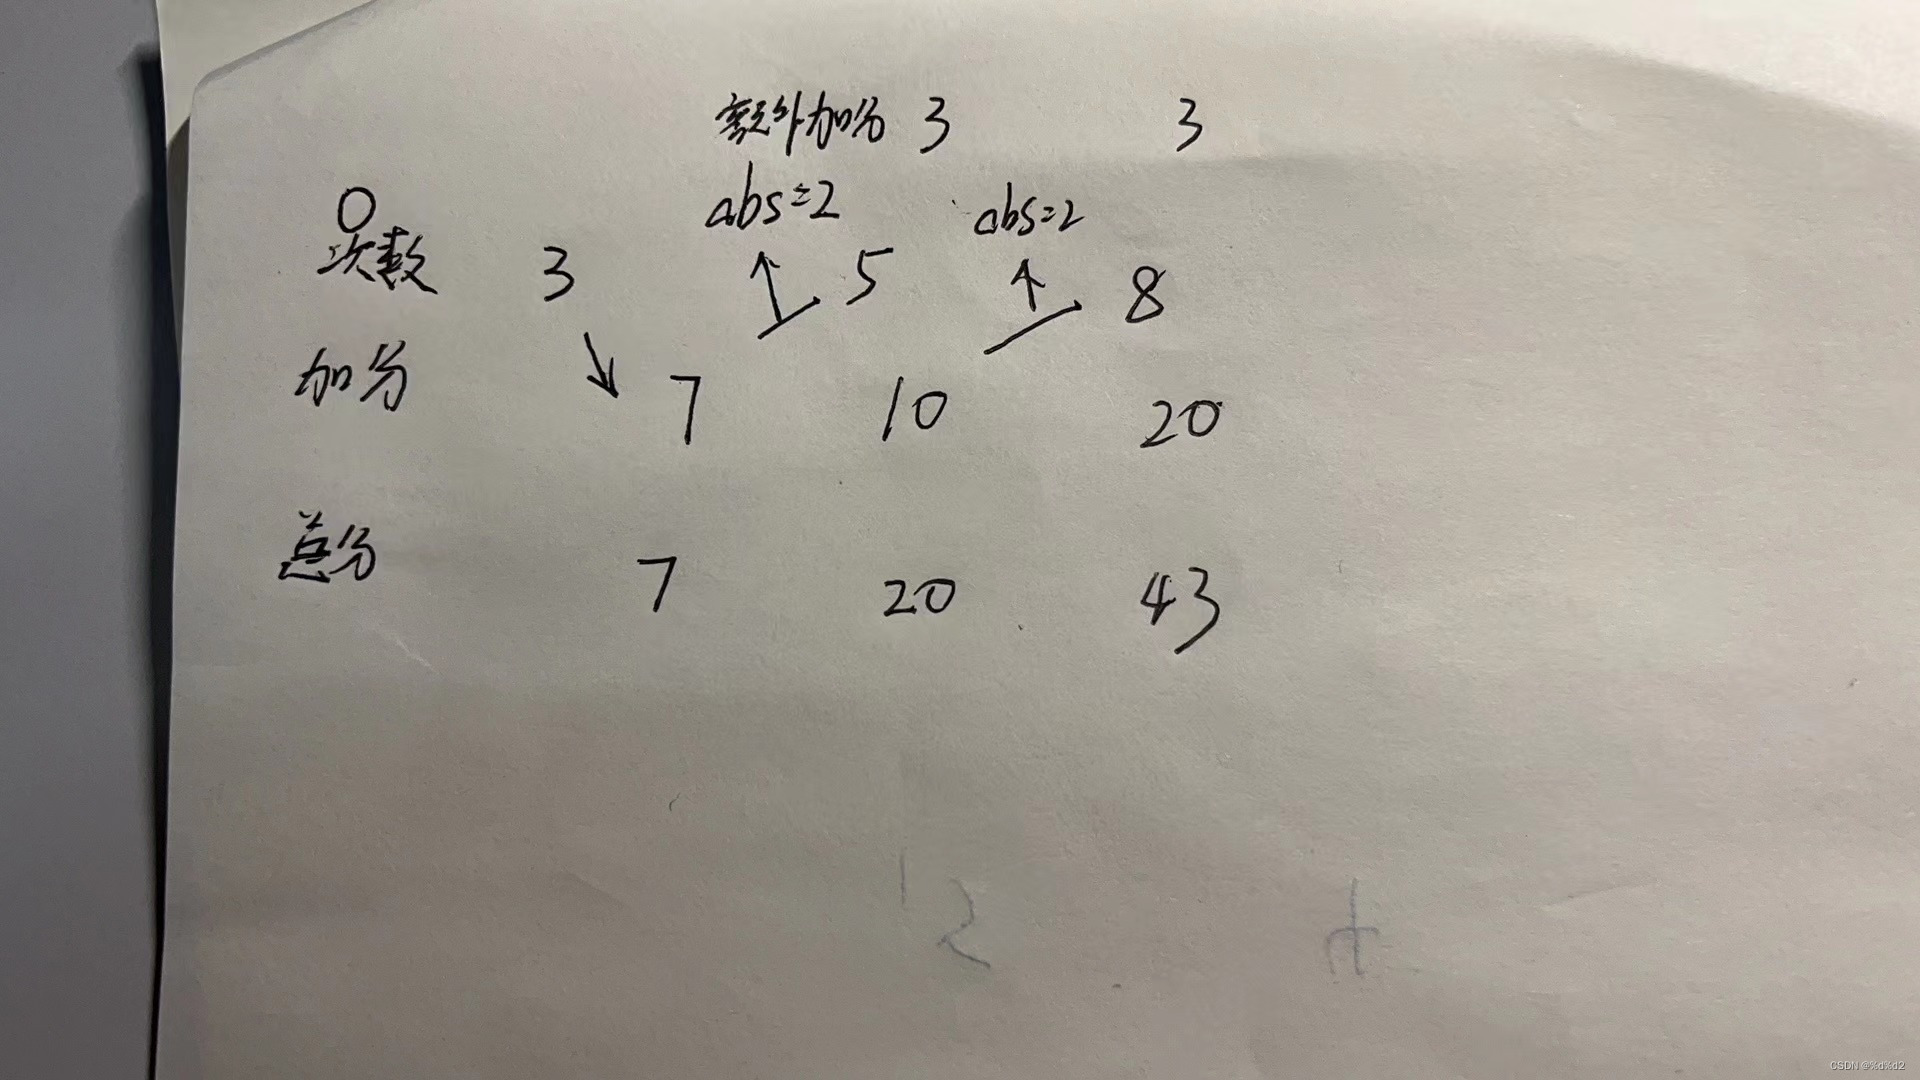 额外加分 3 3
abs=2 abs=2
0
次数 3 5 8
加分 7 10 20
总分 7 20 43
CSDN @%d%d2